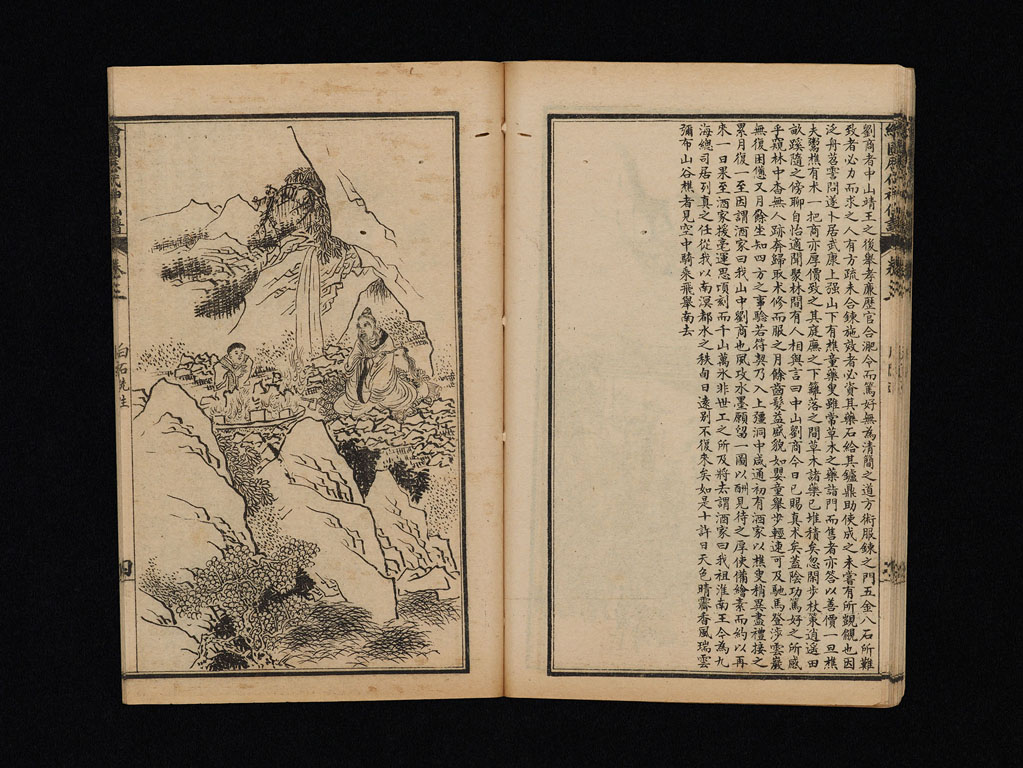 劉商者中山靖王之後舉孝廉歷官合淝令而篤好無為清簡之道方術服鍊之門五金八石所難
致者必力而求之人有方疏未合鍊施效者必資其藥石給其鑪鼎助使成之未嘗有所覬覦也因
泛舟苕霅間遂卜居武康上强山下有樵童藥叟雖常草木之藥詣門而售者亦答以善價一旦樵
夫鬻樵有术一把商亦厚價致之其庭廡之下籬落之間草木諸藥已堆積矣忽閑步杖策逍遥田
畝蹊隧之傍聊自怡適聞聚林間有人相與言曰中山劉商今日已賜真术矣蓋陰功篤好之所感
乎窺林中杳無人跡奔歸取术修而服之月餘齒髮益盛貌如嬰童舉步輕速可及馳馬登涉雲巖
無復困憊又月餘坐知四方之事驗若符契乃入上彊洞中咸通初有酒家以樵叟稍異盡禮接之
累月復一至因謂酒家曰我山中劉商也風攻水墨願留一圖以酬見待之厚使備繪素而約以再
來一日果至酒家援毫運思頃刻而千山萬水非世工之所及將去謂酒家曰我祖淮南王今為九
海總司居列真之任從我以南溟都水之秩旬日遠别不復來矣如是十許日天色晴霽香風瑞雲
彌布山谷樵者見空中騎乘飛舉南去
白石先生